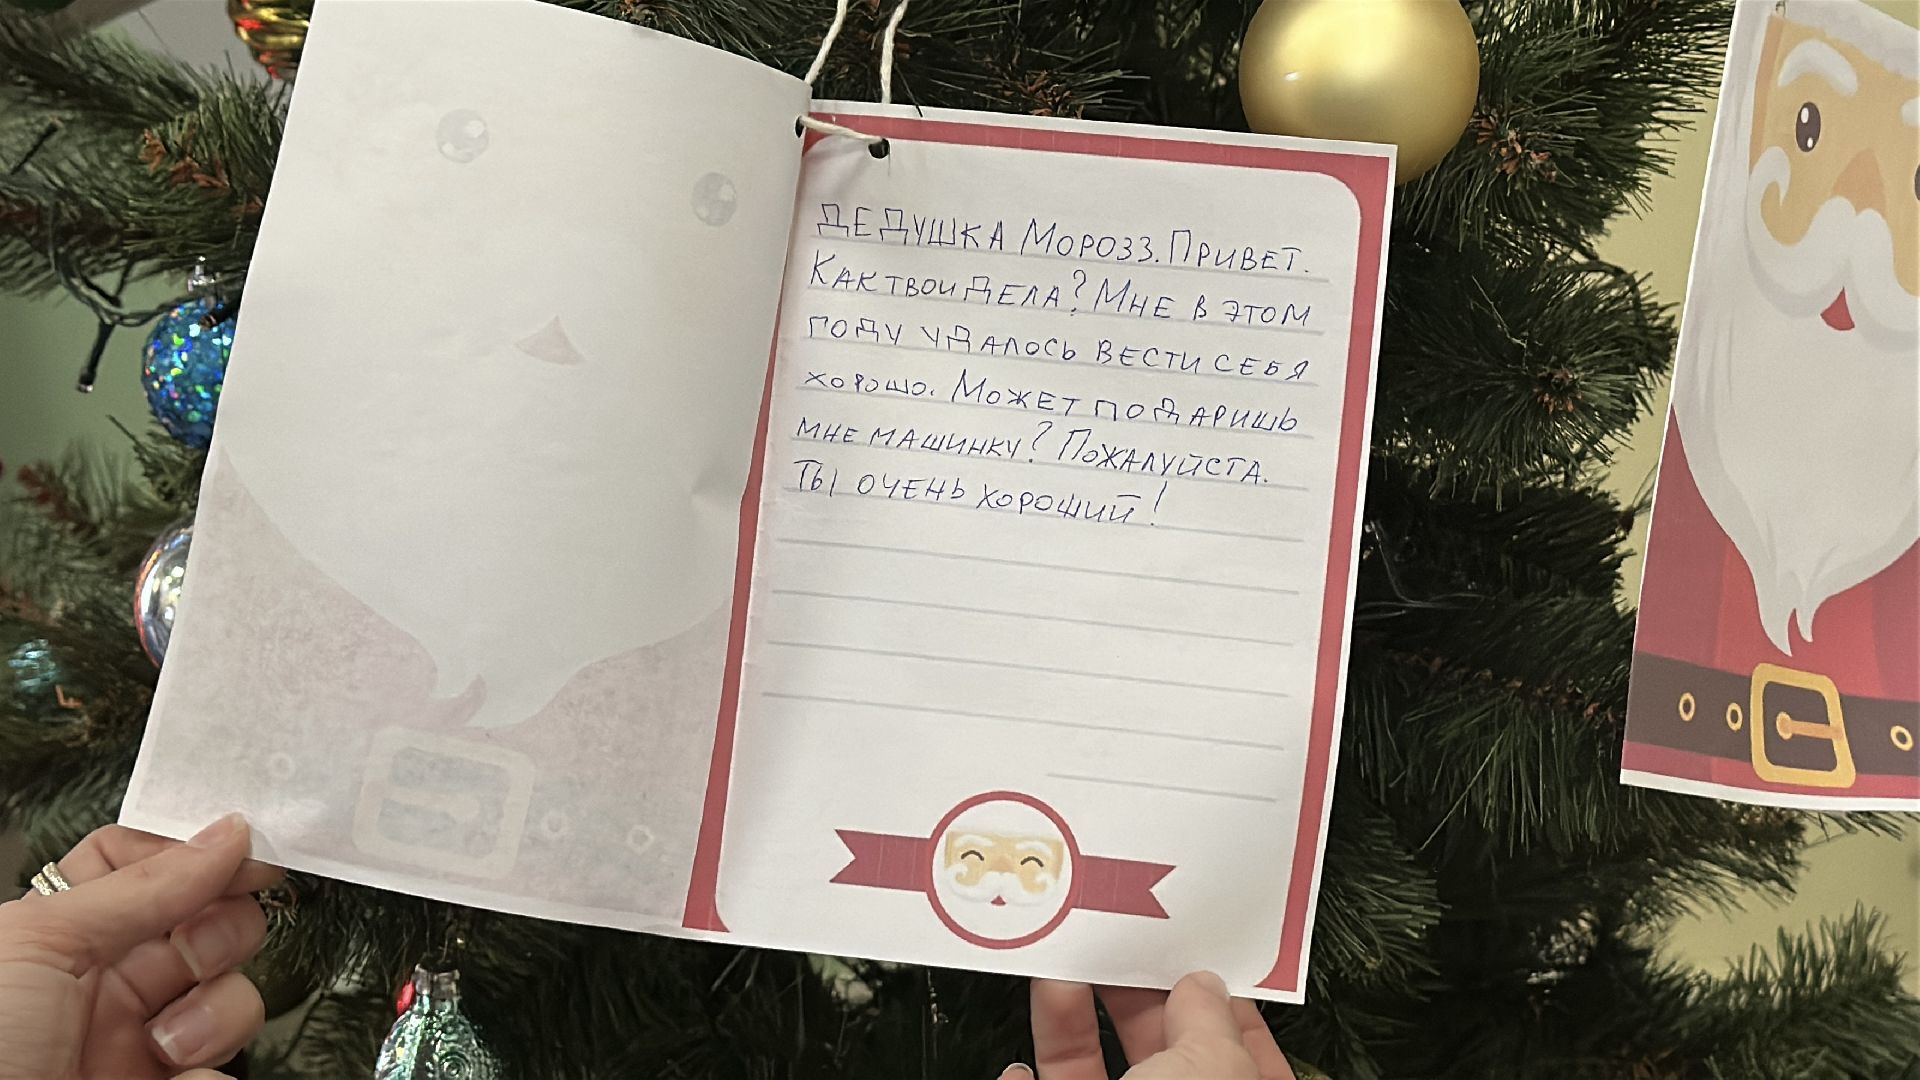 ДЕДУШКА МОРОЗЗ. ПРИВЕТ.
КАК ТВОИ ДЕЛА? МНЕ В ЭТОМ
ГОДУ УДАЛОСЬ ВЕСТИ СЕБЯ
ХОРОШО. МОЖЕТ ПОДАРИШЬ
МНЕ МАШИНКУ? ПОЖАЛУЙСТА.
ТЫ ОЧЕНЬ ХОРОШИЙ!